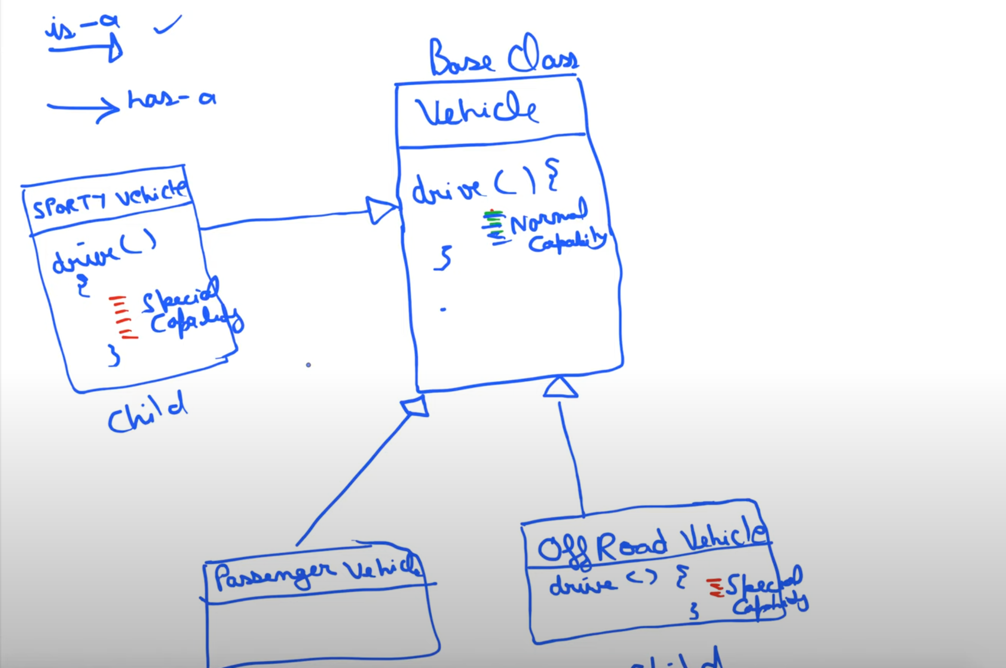 is-a
has-a
Base Class
Vehicle
drive () {
Normal
Capability
}
SPORTY Vehicle
drive ()
{
Special
Capability
}
Child
Passenger Vehicle
Off Road Vehicle
drive () {
Special
Capability
}
Child